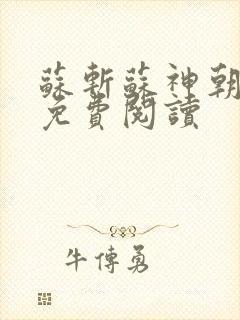 蘇斬蘇神朝
免費閱讀
牛傳勇